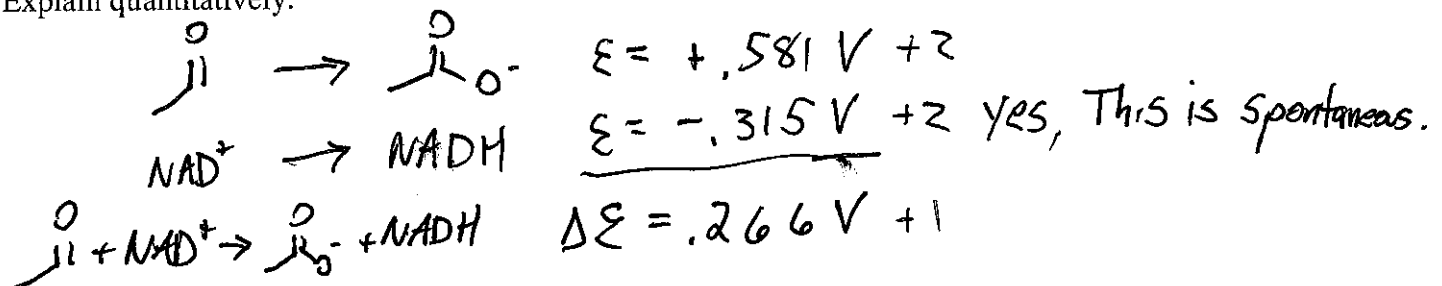 Explain quantitatively.
O → O O⁻ ε = +.581 V +2
NAD⁺ → NADH ε = -.315 V +2 yes, This is spontaneous.
O + NAD⁺ → O O⁻ + NADH Δε = .266 V +1